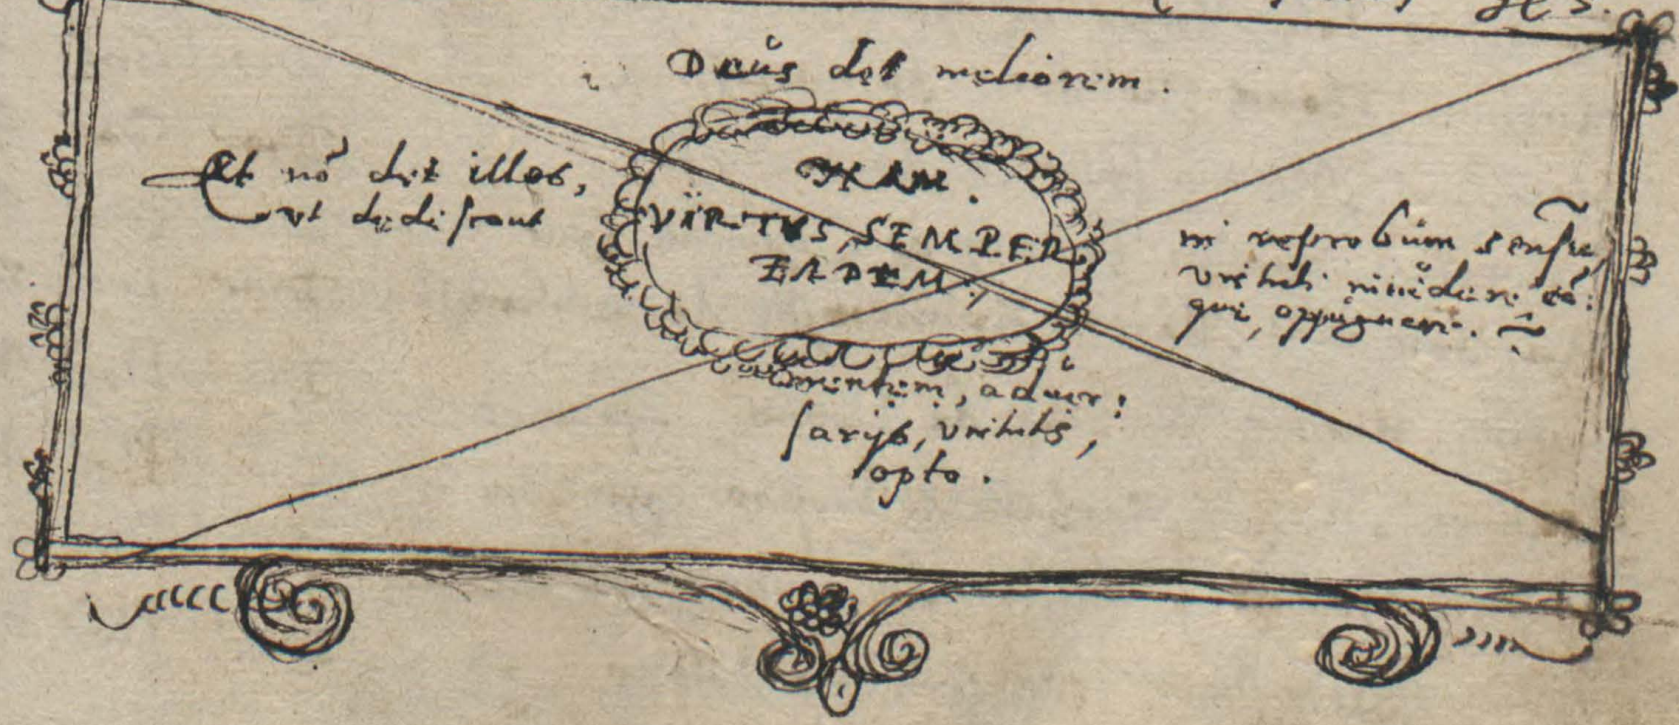 Deus det meliorem.
Et nõ det illos,
ut dediscant
NAM.
VIRTUS, SEMPER
EADEM.
in reprobum sensu,
virtuti inuidere
qui, oppugnare.
mentem, aduer:
sarijs, virtutis,
opto.